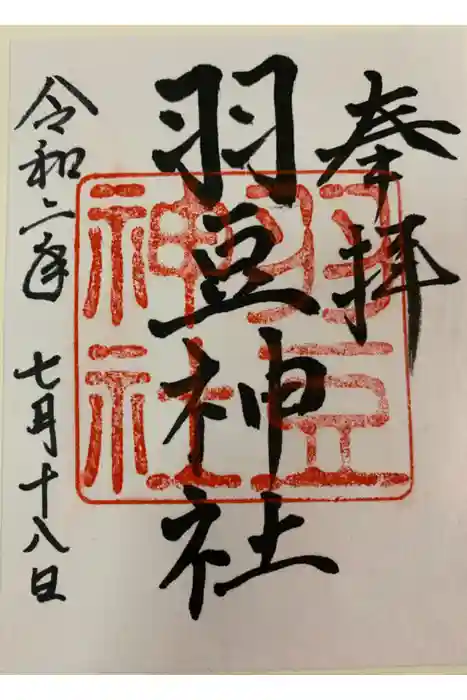 奉拝
羽豆神社
令和二年
七月十八日
羽豆
神社